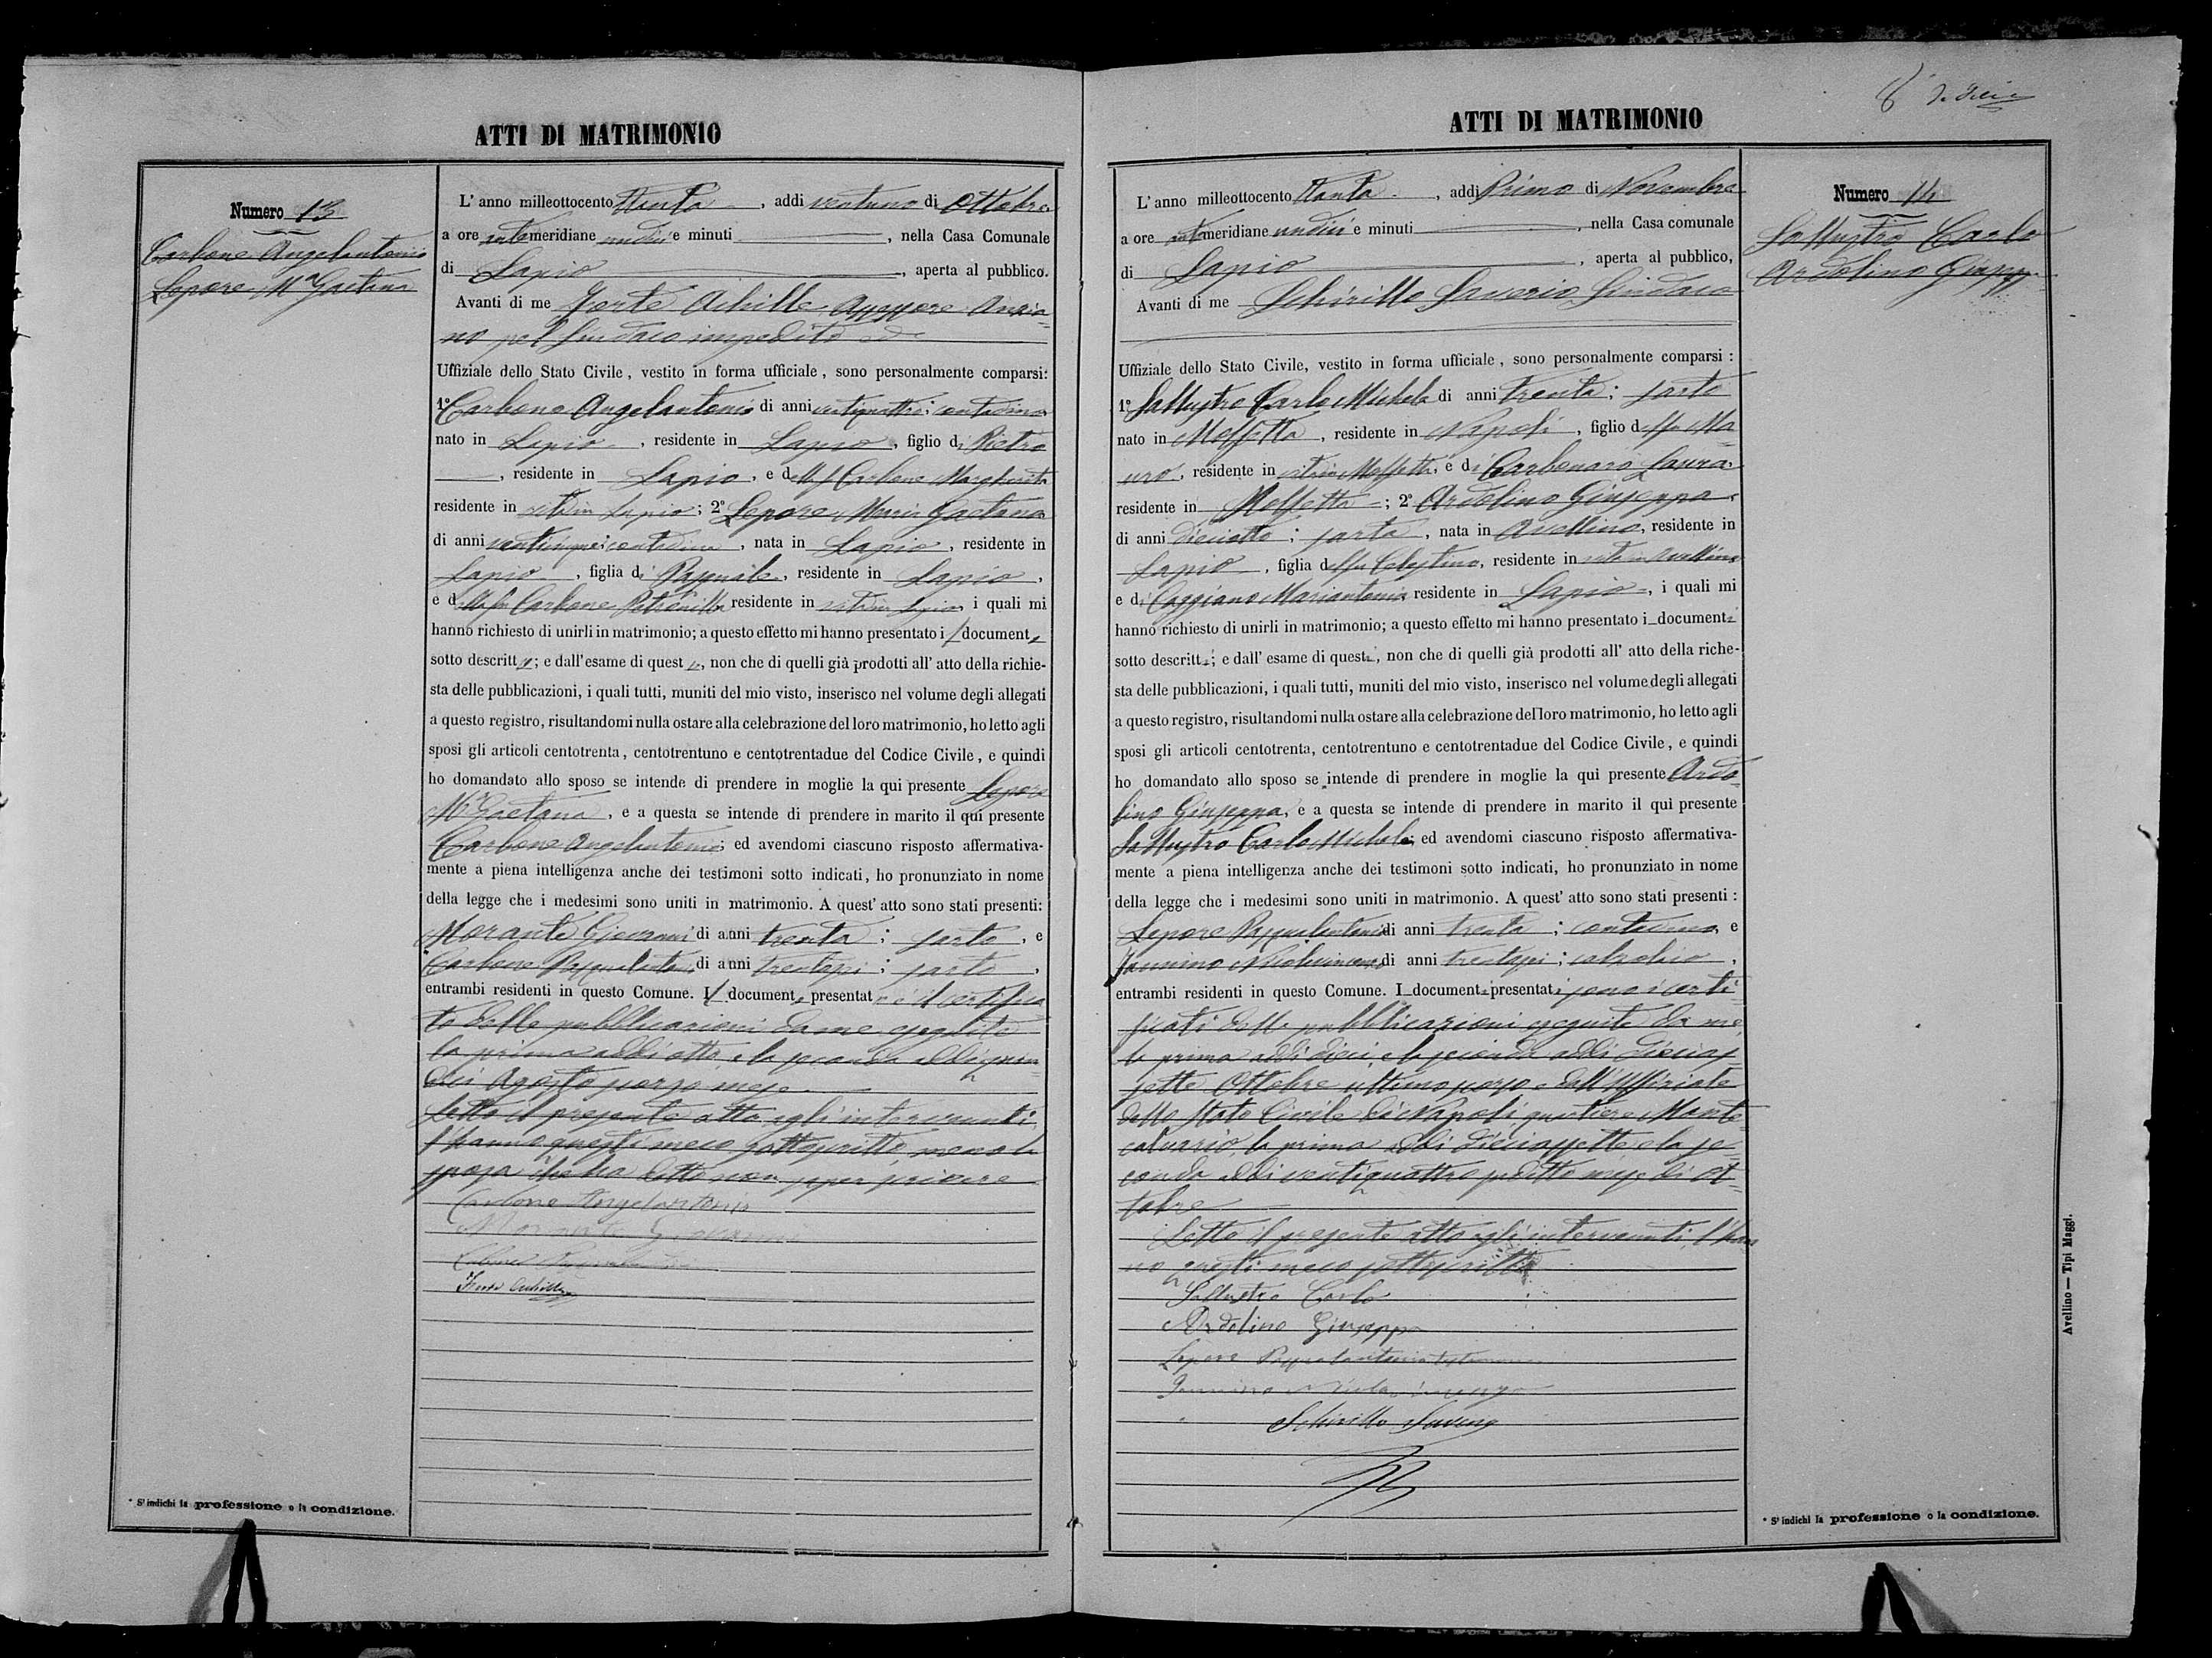 ATTI DI MATRIMONIO
Numero 13
Carbone Angelantonio
Lepore Mª Gaetana
L' anno milleottocento ottanta, addi ventuno di Ottobre
a ore antimeridiane undici e minuti, nella Casa Comunale
di Lapio, aperta al pubblico.
Avanti di me Forte Achille Assessore Anzia-
no pel Sindaco impedito
Uffiziale dello Stato Civile, vestito in forma ufficiale, sono personalmente comparsi:
1º Carbone Angelantonio di anni ventiquattro; contadino
nato in Lapio, residente in Lapio, figlio di Pietro
, residente in Lapio, e della fu Carbone Margherita
residente in vita in Lapio; 2º Lepore Maria Gaetana
di anni venticinque; contadina, nata in Lapio, residente in
Lapio, figlia di Pasquale, residente in Lapio,
e della fu Carbone Petronilla residente in vita in Lapio, i quali mi
hanno richiesto di unirli in matrimonio; a questo effetto mi hanno presentato il document
sotto descritto; e dall'esame di questo, non che di quelli già prodotti all' atto della richie-
sta delle pubblicazioni, i quali tutti, muniti del mio visto, inserisco nel volume degli allegati
a questo registro, risultandomi nulla ostare alla celebrazione del loro matrimonio, ho letto agli
sposi gli articoli centotrenta, centotrentuno e centotrentadue del Codice Civile, e quindi
ho domandato allo sposo se intende di prendere in moglie la qui presente Lepore
Mª Gaetana, e a questa se intende di prendere in marito il qui presente
Carbone Angelantonio; ed avendomi ciascuno risposto affermativa-
mente a piena intelligenza anche dei testimoni sotto indicati, ho pronunziato in nome
della legge che i medesimi sono uniti in matrimonio. A quest' atto sono stati presenti:
Morante Giovanni di anni trenta; sarto, e
Carbone Pasqualantonio di anni trentasei; sarto,
entrambi residenti in questo Comune. Il documento presentato è il certifica
to delle pubblicazioni da me eseguite
la prima addi otto, e la seconda addi quin
dici Agosto scorso mese.
Letto il presente atto agli intervenuti,
l'hanno questi meco sottoscritto, meno la
sposa che ha detto non saper scrivere
Carbone Angelantonio
Morante Giovanni
Carbone Pasqualantonio
Forte Achille
* S' indichi la professione o la condizione.
ATTI DI MATRIMONIO
L' anno milleottocento ottanta, addi Primo di Novembre
a ore antimeridiane undici e minuti, nella Casa comunale
di Lapio, aperta al pubblico,
Avanti di me Schirillo Saverio Sindaco
Uffiziale dello Stato Civile, vestito in forma ufficiale, sono personalmente comparsi:
1º Sallustro Carlo Michele di anni trenta; sarto
nato in Molfetta, residente in Napoli, figlio del fu Ma-
uro, residente in vita in Molfetta, e di Carbonara Laura
residente in Molfetta; 2º Ardolino Giuseppa
di anni dieciotto; sarta, nata in Avellino, residente in
Lapio, figlia del fu Celestino, residente in vita in Avellino
e di Caggiano Mariantonia, residente in Lapio, i quali mi
hanno richiesto di unirli in matrimonio; a questo effetto mi hanno presentato i documenti
sotto descritti; e dall' esame di questi, non che di quelli già prodotti all' atto della riche-
sta delle pubblicazioni, i quali tutti, muniti del mio visto, inserisco nel volume degli allegati
a questo registro, risultandomi nulla ostare alla celebrazione del loro matrimonio, ho letto agli
sposi gli articoli centotrenta, centotrentuno e centotrentadue del Codice Civile, e quindi
ho domandato allo sposo se intende di prendere in moglie la qui presente Ardo-
lino Giuseppa, e a questa se intende di prendere in marito il qui presente
Sallustro Carlo Michele; ed avendomi ciascuno risposto affermativa-
mente a piena intelligenza anche dei testimoni sotto indicati, ho pronunziato in nome
della legge che i medesimi sono uniti in matrimonio. A quest' atto sono stati presenti:
Lepore Pasqualantonio di anni trenta; contadino, e
Jannino Nicolavincenzo di anni trentasei; calzolaio,
entrambi residenti in questo Comune. I documenti presentati sono i certi-
ficati delle pubblicazioni eseguite da me
la prima addi dieci, e la seconda addi dicias
sette Ottobre ultimo scorso e dall'Uffiziale
dello Stato Civile di Napoli quartiere Monte
calvario, la prima addi dieciassette e la se-
conda addi ventiquattro predetto mese di Ot-
tobre
Letto il presente atto agli intervenuti, l'han
no questi meco sottoscritto
Sallustro Carlo
Ardolino Giuseppa
Lepore Pasqualantonio testimone
Jannino Nicolavincenzo
Schirillo Saverio
Numero 14
Sallustro Carlo
Ardolino Giusepp
* S' indichi la professione o la condizione.
Avellino — Tipi Maggi.